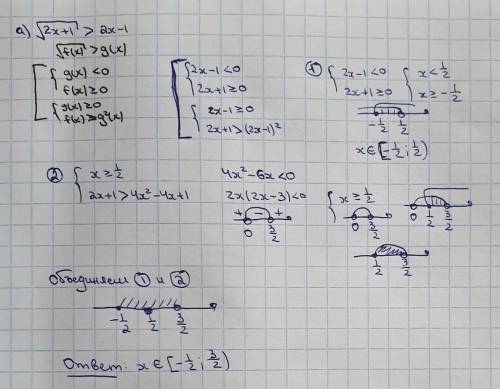 а) √(2x+1) > 2x-1
√f(x) > g(x)
[ { g(x) < 0
f(x) ≥ 0
{ g(x) ≥ 0
f(x) > g²(x)
[ { 2x-1 < 0
2x+1 ≥ 0
{ 2x-1 ≥ 0
2x+1 > (2x-1)²
① { 2x-1 < 0
2x+1 ≥ 0
{ x < 1/2
x ≥ -1/2
-1/2 1/2
x ∈ [-1/2; 1/2)
② { x ≥ 1/2
2x+1 > 4x²-4x+1
4x²-6x < 0
2x(2x-3) < 0
+ - +
0 3/2
{ x ≥ 1/2
0 3/2
0 1/2 3/2
1/2 3/2
Объединяем ① и ②
-1/2 1/2 3/2
Ответ: x ∈ [-1/2; 3/2)